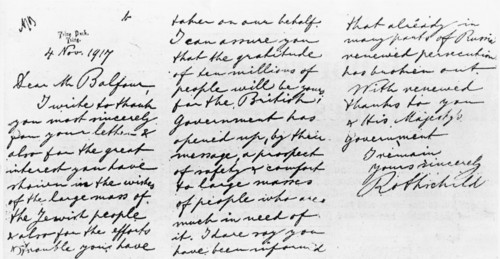 Tring Park,
Tring.
4 Nov. 1917
Dear Mr Balfour,
I write to thank
you most sincerely
for your letter &
also for the great
interest you have
shown in the wishes
of the large mass of
the Jewish people
& also for the efforts
& trouble you have
taken on our behalf.
I can assure you
that the gratitude
of ten millions of
people will be yours,
for the British
Government has
opened up, by their
message, a prospect
of safety & comfort
to large masses
of people who are
much in need of
it. I dare say you
have been informed
that already in
many parts of Russia
renewed persecution
has broken out
With renewed
thanks to you
& His Majesty's
Government
I remain
yours sincerely
Rothschild